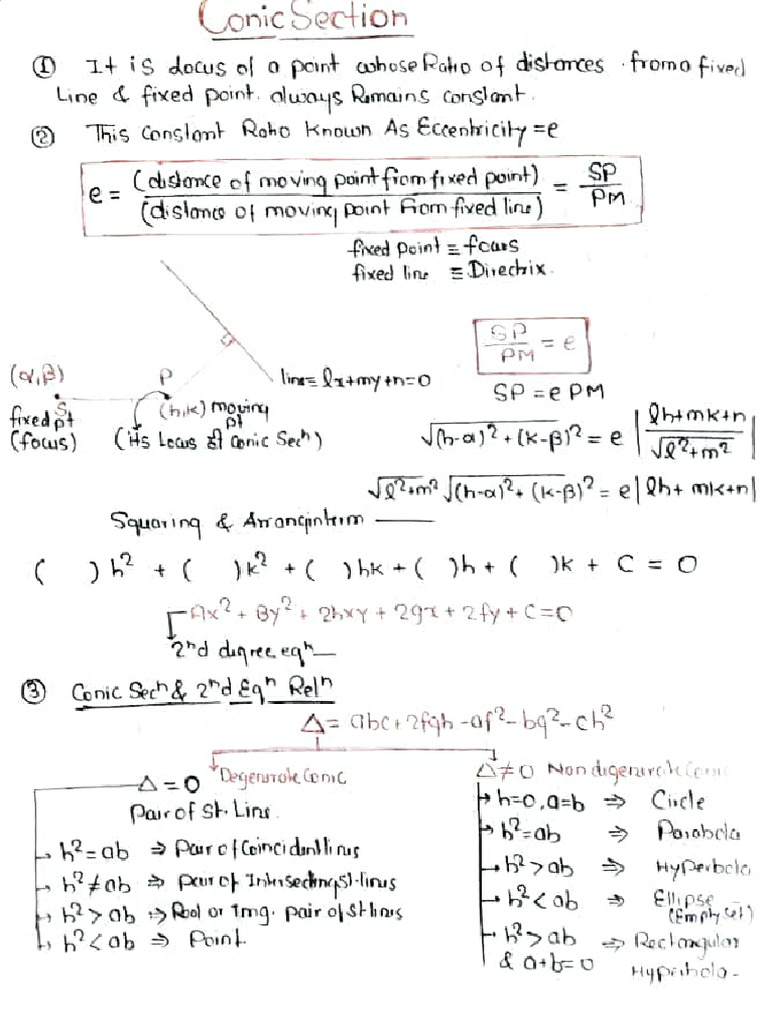 Conic Section
① It is Locus of a point whose Ratio of distances from a fixed
Line & fixed point always Remains constant.
② This Constant Ratio Known As Eccentricity = e
e = (distance of moving point from fixed point) / (distance of moving point from fixed line) = SP/PM
fixed point ≡ focus
fixed line ≡ Directrix.
SP/PM = e
(α,β)
P
line = lx+my+n=0
SP = e PM
S
fixed pt
(focus)
(h,k) moving pt
(Its Locus is Conic Secⁿ)
√(h-α)²+(k-β)² = e |lh+mk+n / √l²+m²|
√l²+m² √(h-α)²+(k-β)² = e|lh+mk+n|
Squaring &
( )h² + ( )k² + ( )hk + ( )h + ( )k + C = 0
Ax² + By² + 2hxy + 2gx + 2fy + C = 0
2ⁿd degree eqⁿ
③ Conic Secⁿ & 2ⁿd Eqⁿ Relⁿ
Δ = abc+2fgh-af²-bg²-ch²
Δ = 0 Degenerate Conic
Pair of St. Line.
h²=ab ⇒ Pair of Coincident lines
h²≠ab ⇒ pair of Intersecting st-lines
h²>ab ⇒ Real or Img. pair of st lines
h²<ab ⇒ Point.
Δ≠0 Non digenerate Conic
h=0, a=b ⇒ Circle
h²=ab ⇒ Parabola
h²>ab ⇒ Hyperbola
h²<ab ⇒ Ellipse
(Empty set)
h²>ab ⇒ Rectangular
& a+b=0 Hyperbola-